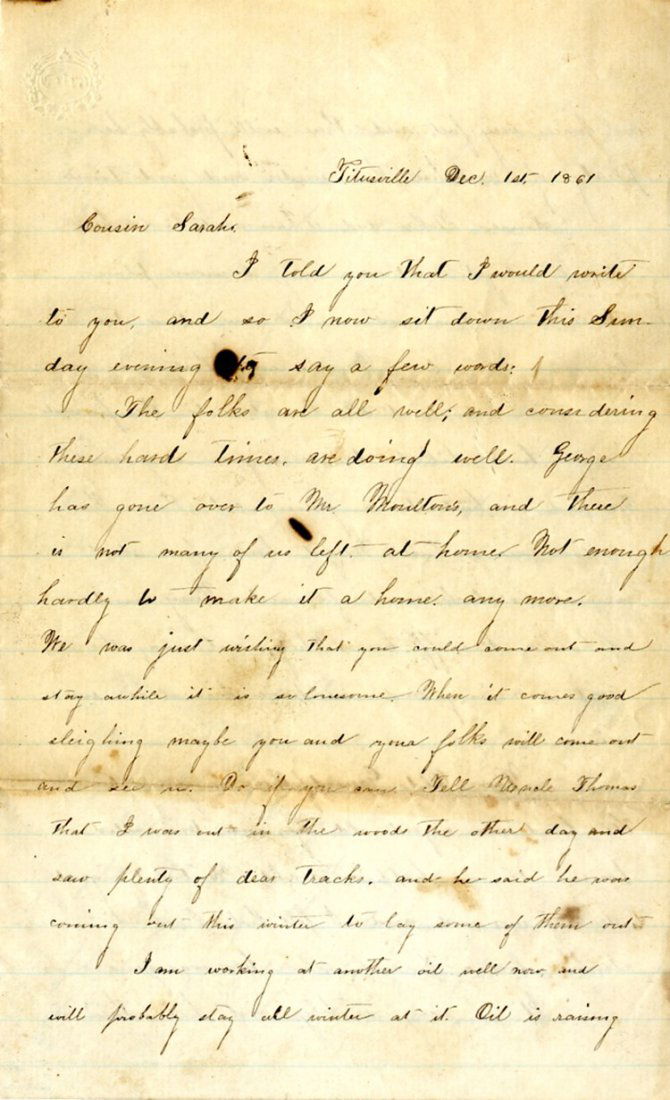 Titusville Dec. 1st, 1861
Cousin Sarah.
I told you that I would write
to you, and so I now sit down this Sun-
day evening to say a few words:
The folks are all well; and considering
these hard times, are doing well. George
has gone over to Mr. Moulton's, and there
is not many of us left at home. Not enough
hardly to make it a home any more.
We was just wishing that you could come out and
stay awhile it is so lonesome. When it comes good
sleighing maybe you and your folks will come out
and see us. Do if you can. Tell Uncle Thomas
that I was out in the woods the other day and
saw plenty of dear tracks. and he said he was
coming out this winter to lay some of them out
I am working at another oil well now, and
will probably stay all winter at it. Oil is raising